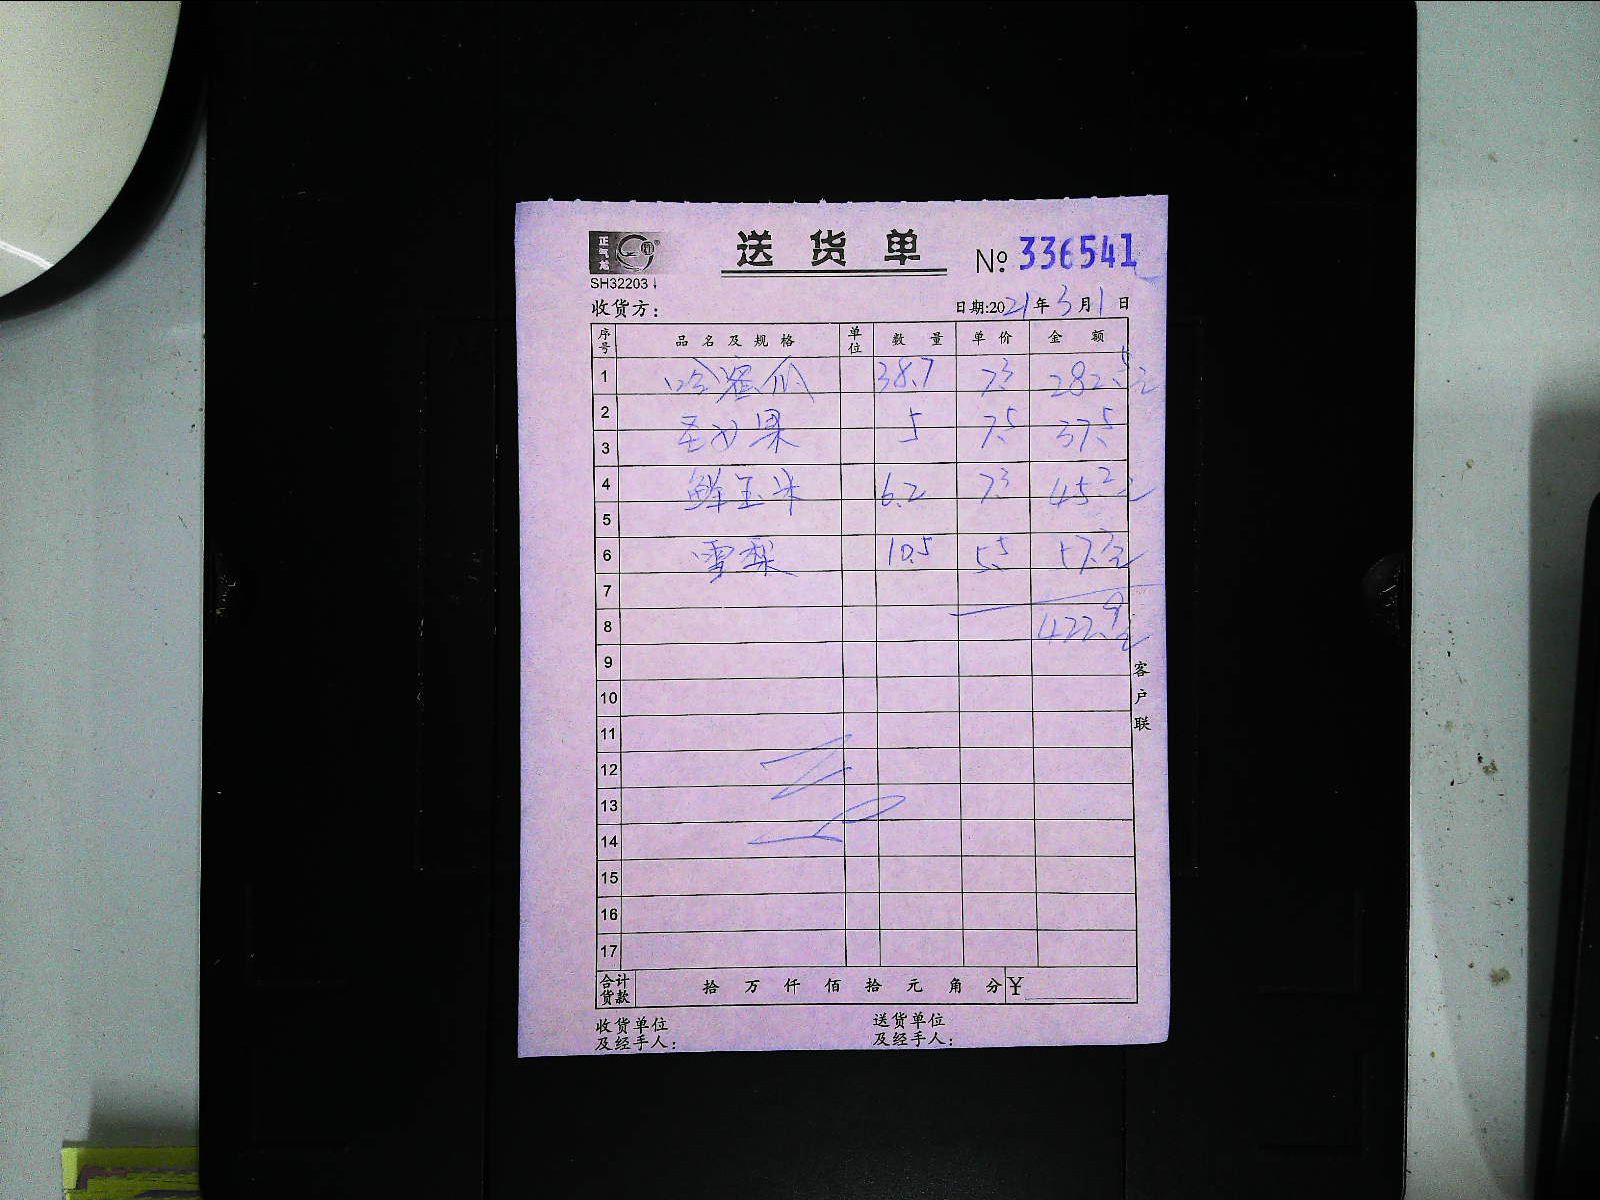 正气龙
送货单
№ 336541
SH32203
收货方:
日期:2021年3月1日
序号 品名及规格 单位 数量 单价 金额
1 哈蜜瓜 38.7 7.3 282.5元
2
圣女果 5 7.5 37.5
3
4 鲜玉米 6.2 7.3 45.2元
5
6 雪梨 10.5 5.5 57.7元
7
8 422.9元
9
10
11
12
13
14
15
16
17
客户联
合计货款 拾万仟佰拾元角分 ¥
收货单位及经手人:
送货单位及经手人: